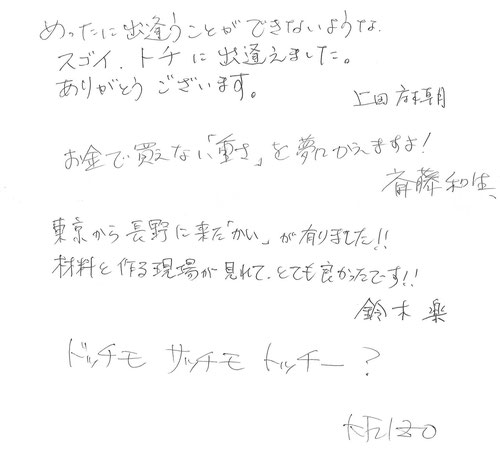 めったに出逢うことができないような、
スゴイ、トチに出逢えました。
ありがとうございます。
上田
お金で買えない「重さ」を夢にかえますよ！
斎藤和生
東京から長野に来た「かい」が有りました!!
材料と作る現場が見れて、とても良かったです!!
鈴木 楽
ドッチモ サッチモ トッチー？